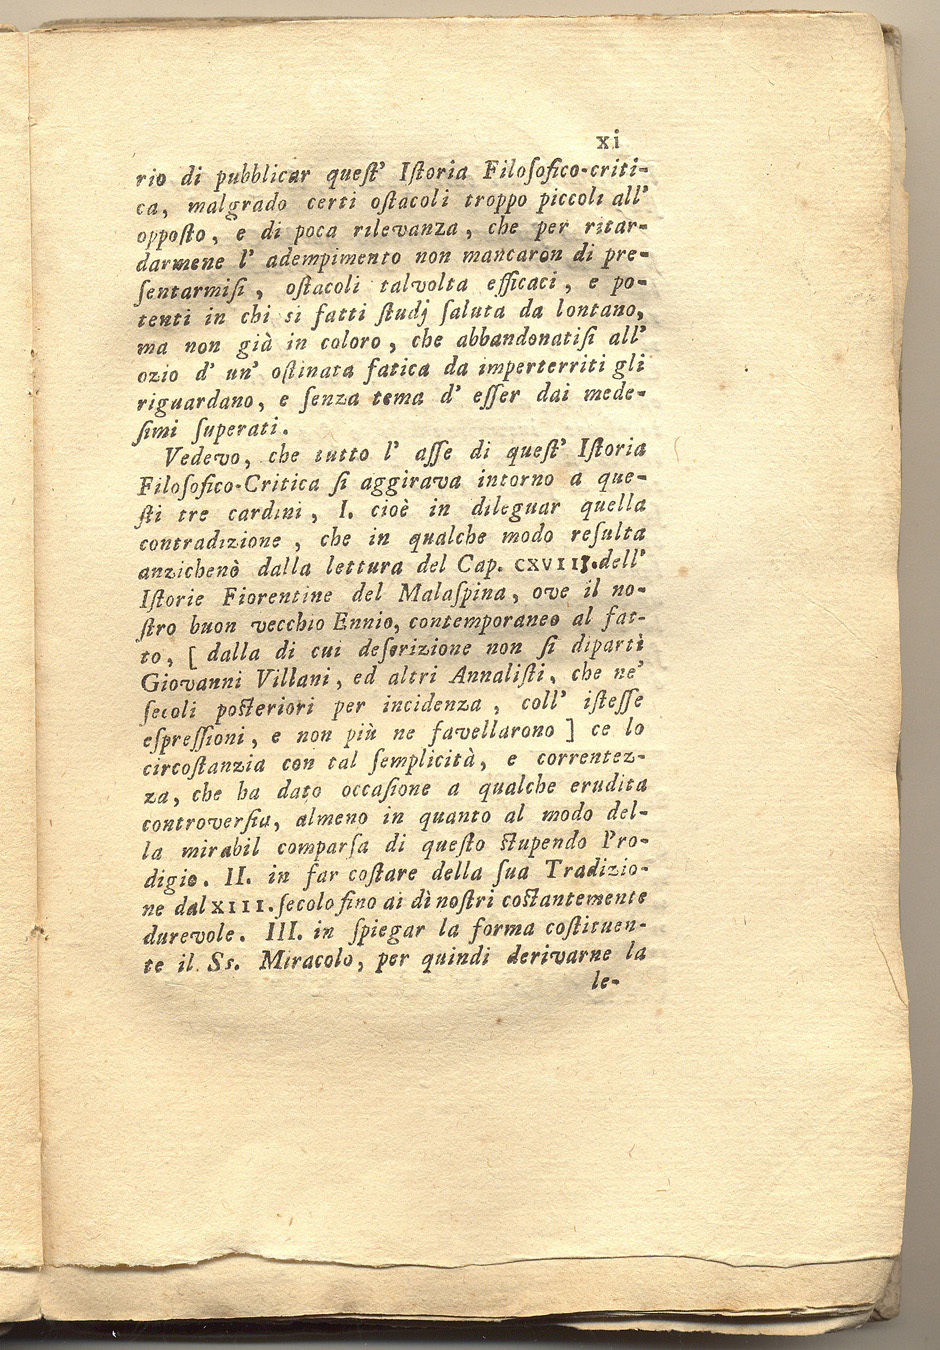 xi
rio di pubblicar queſt' Iſtoria Filoſofico-criti-
ca, malgrado certi oſtacoli troppo piccoli all'
oppoſto, e di poca rilevanza, che per ritar-
darmene l' adempimento non mancaron di pre-
ſentarmiſi, oſtacoli talvolta efficaci, e po-
tenti in chi si fatti ſtudj ſaluta da lontano,
ma non già in coloro, che abbandonatiſi all'
ozio d' un' oſtinata fatica da imperterriti gli
riguardano, e ſenza tema d' eſſer dai mede-
ſimi ſuperati.
Vedevo, che tutto l' aſſe di queſt' Iſtoria
Filoſofico-Critica ſi aggirava intorno a que-
ſti tre cardini, I. cioè in dileguar quella
contradizione, che in qualche modo reſulta
anzichenò dalla lettura del Cap. CXVIII. dell'
Iſtorie Fiorentine del Malaſpina, ove il no-
ſtro buon vecchio Ennio, contemporaneo al fat-
to, [ dalla di cui deſcrizione non ſi dipartì
Giovanni Villani, ed altri Annaliſti, che ne'
ſecoli poſteriori per incidenza, coll' iſteſſe
eſpreſſioni, e non più ne favellarono ] ce lo
circoſtanzia con tal ſemplicità, e correntez-
za, che ha dato occaſione a qualche erudita
controverſia, almeno in quanto al modo del-
la mirabil comparſa di queſto ſtupendo Pro-
digio. II. in far coſtare della ſua Tradizio-
ne dal XIII. ſecolo fino ai dì noſtri coſtantemente
durevole. III. in ſpiegar la forma coſtituen-
te il Ss. Miracolo, per quindi derivarne la
le-